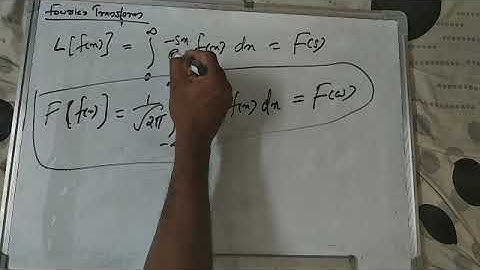 Fourier Transform
L[f(x)] = ∫₀^∞ e^{-sx} f(x) dx = F(s)
F[f(x)] = 1/√2π ∫ f(x) dx = F(s)